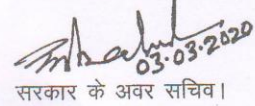 03.03.2020
सरकार के अवर सचिव।